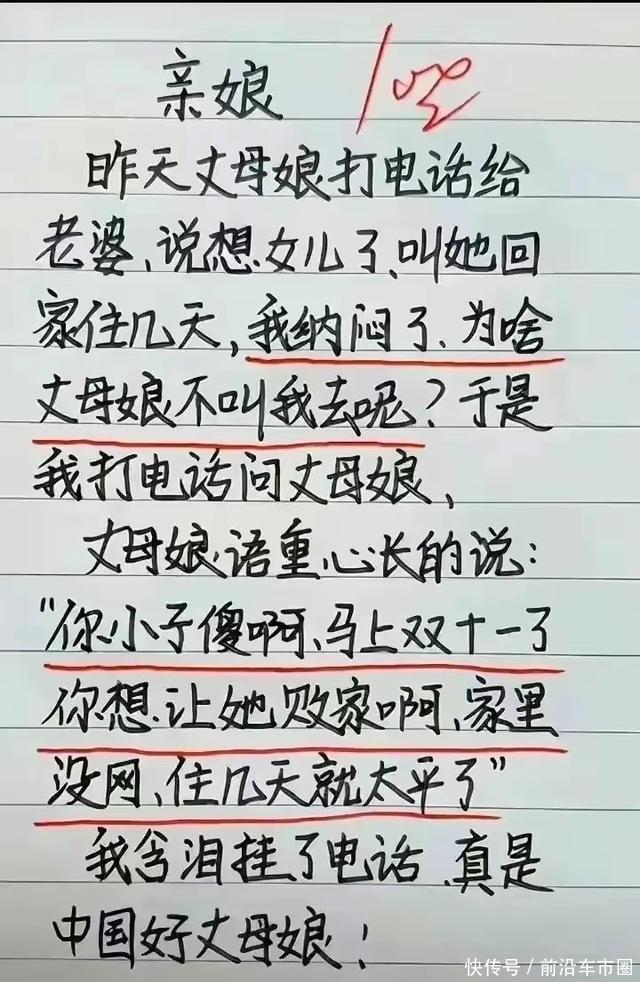 亲娘
昨天丈母娘打电话给
老婆、说想女儿了、叫她回
家住几天,我纳闷了、为啥
丈母娘不叫我去呢?于是
我打电话问丈母娘、
丈母娘语重心长的说:
“你小子傻啊、马上双十一了
你想让她败家啊、家里
没网、住几天就太平了”
我含泪挂了电话、真是
中国好丈母娘!
快传号/前沿车市圈